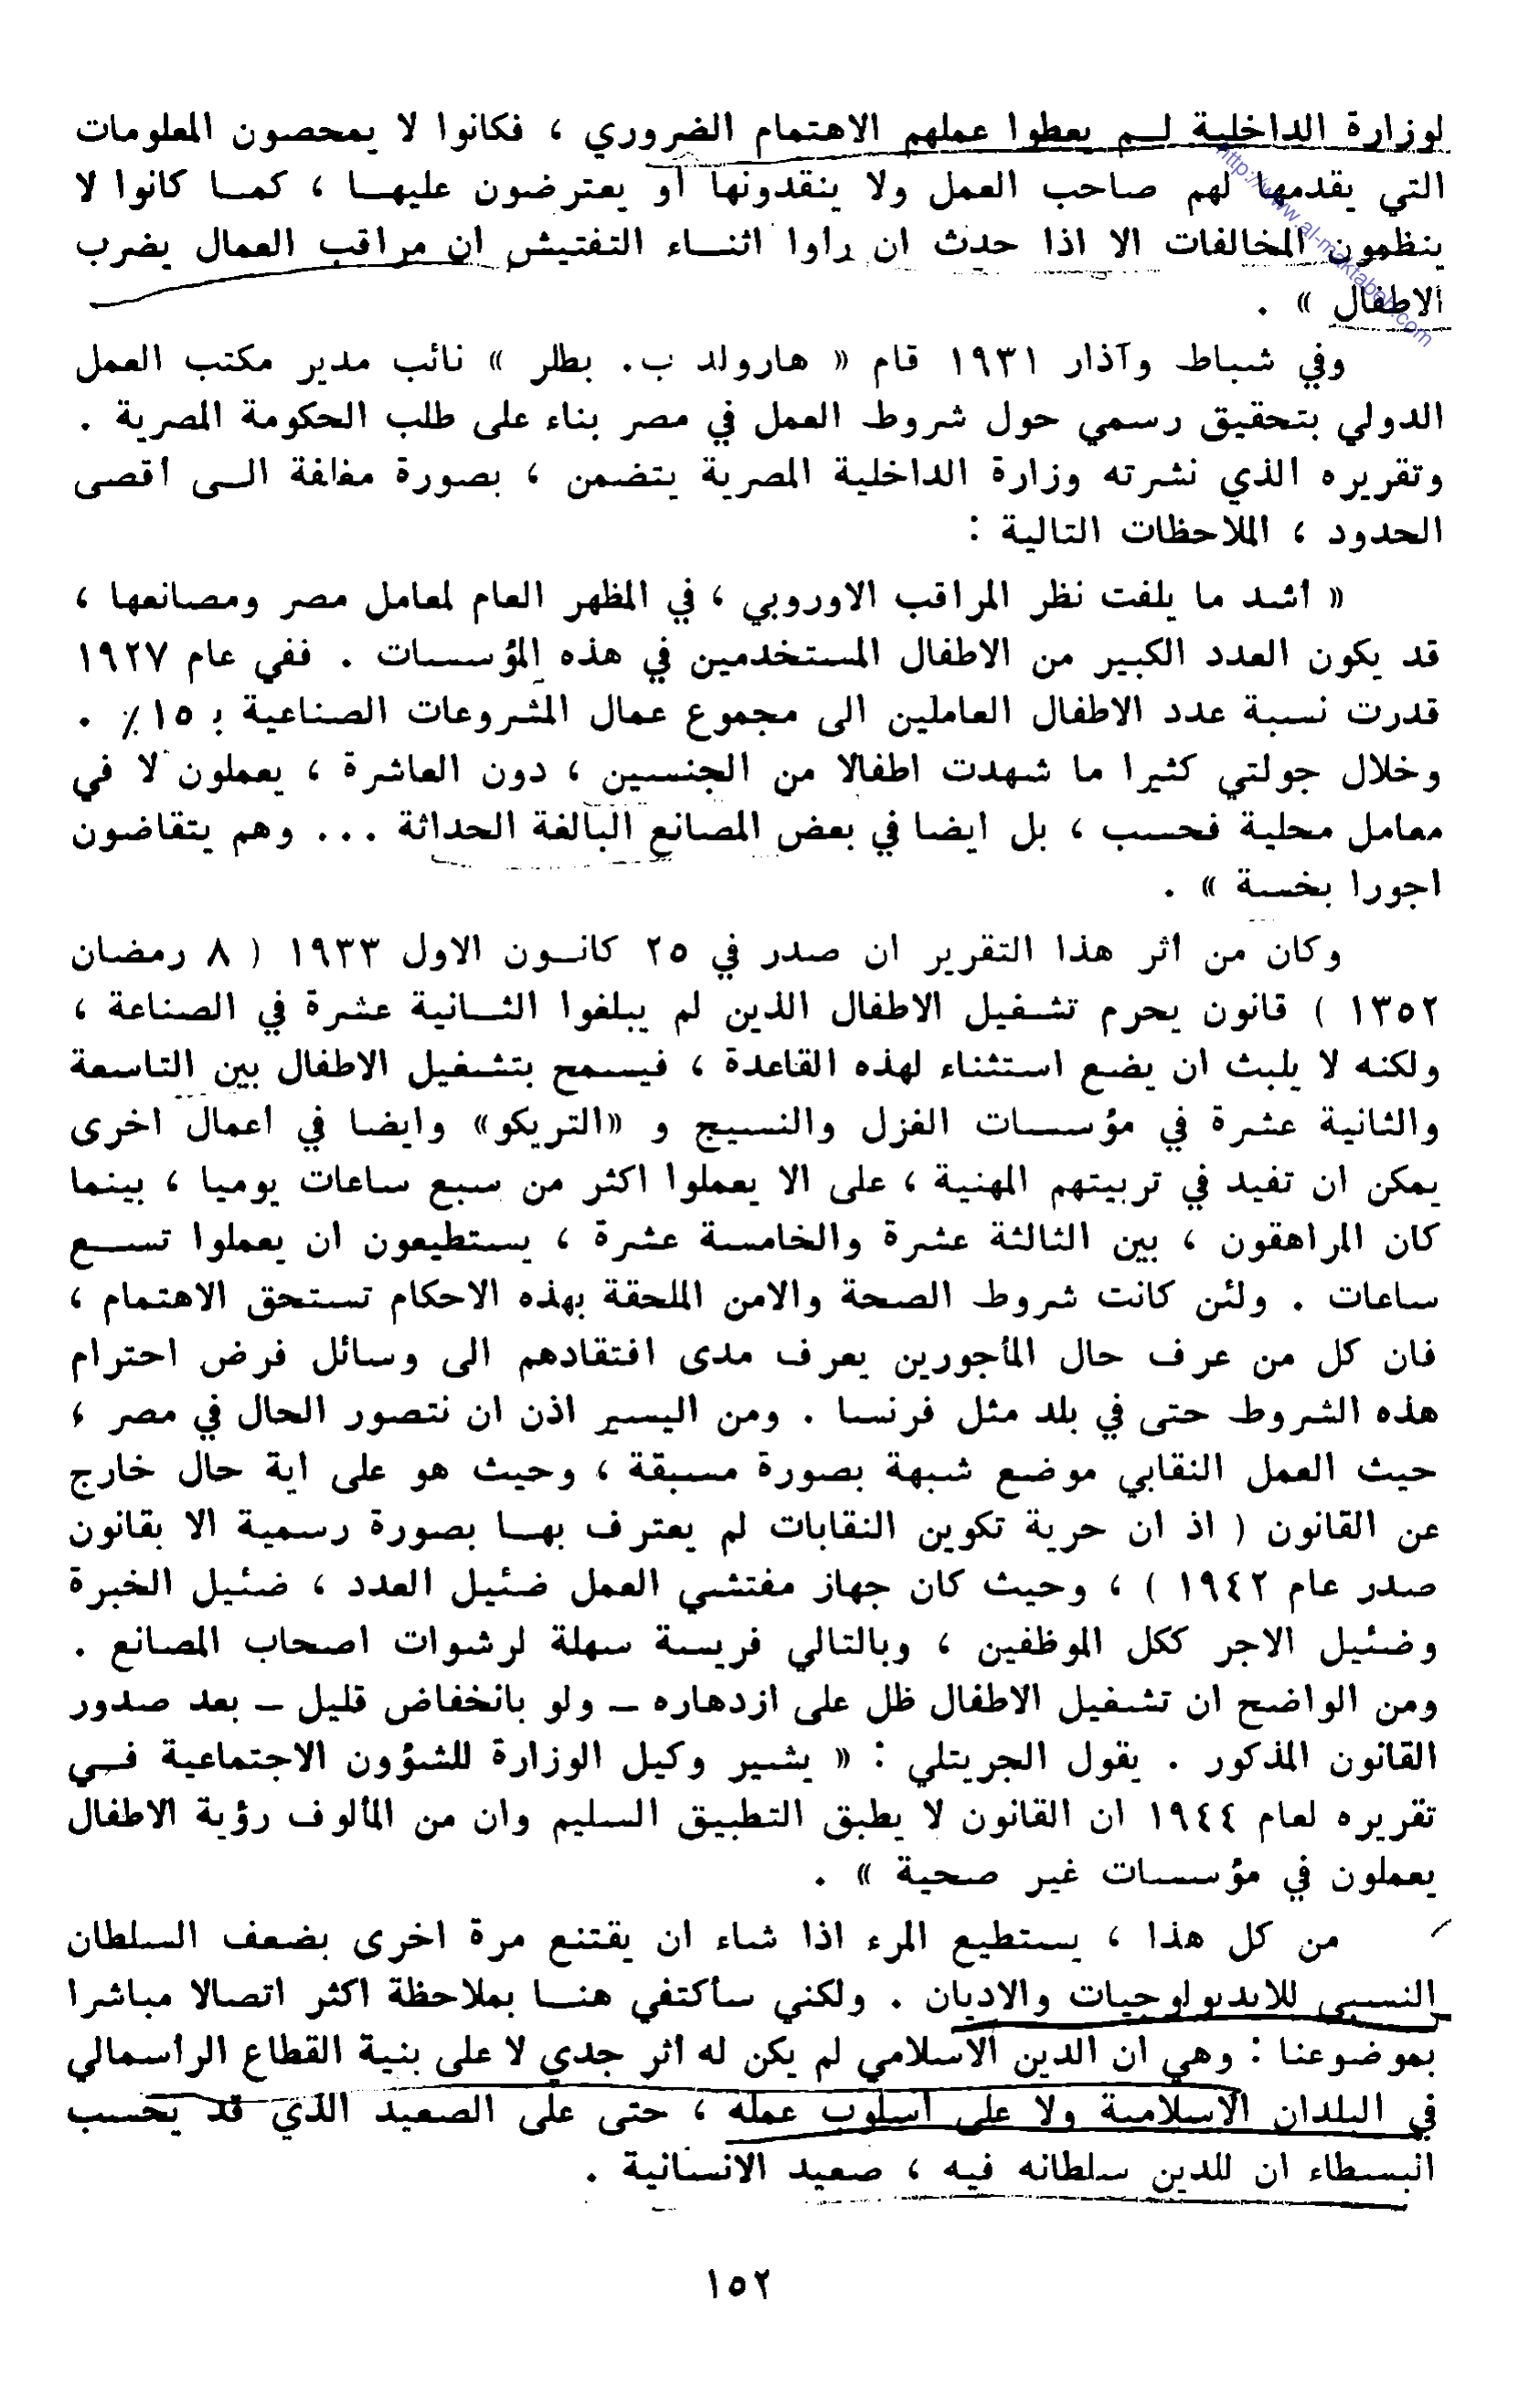 لوزارة الداخلية لــم يعطوا عملهم الاهتمام الضروري ، فكانوا لا يمحصون المعلومات
التي يقدمها لهم صاحب العمل ولا ينقدونها أو يعترضون عليهــا ، كمــا كانوا لا
ينظمون المخالفات الا اذا حدث ان رأوا اثنــاء التفتيش ان مراقب العمال يضرب
الاطفال » .
وفي شباط وآذار ١٩٣١ قام « هارولد ب. بطلر » نائب مدير مكتب العمل
الدولي بتحقيق رسمي حول شروط العمل في مصر بناء على طلب الحكومة المصرية .
وتقريره الذي نشرته وزارة الداخلية المصرية يتضمن ، بصورة مغالفة الــى أقصى
الحدود ، الملاحظات التالية :
« أشد ما يلفت نظر المراقب الاوروبي ، في المظهر العام لمعامل مصر ومصانعها ،
قد يكون العدد الكبير من الاطفال المستخدمين في هذه المؤسسات . ففي عام ١٩٢٧
قدرت نسبة عدد الاطفال العاملين الى مجموع عمال المشروعات الصناعية بـ ١٥٪ .
وخلال جولتي كثيرا ما شهدت اطفالا من الجنسين ، دون العاشرة ، يعملون لا في
معامل محلية فحسب ، بل ايضا في بعض المصانع البالغة الحداثة ... وهم يتقاضون
اجورا بخسة » .
وكان من أثر هذا التقرير ان صدر في ٢٥ كانــون الاول ١٩٣٣ ( ٨ رمضان
١٣٥٢ ) قانون يحرم تشغيل الاطفال الذين لم يبلغوا الثــانية عشرة في الصناعة ،
ولكنه لا يلبث ان يضع استثناء لهذه القاعدة ، فيسمح بتشغيل الاطفال بين التاسعة
والثانية عشرة في مؤسسات الغزل والنسيج و «التريكو» وايضا في اعمال اخرى
يمكن ان تفيد في تربيتهم المهنية ، على الا يعملوا اكثر من سبع ساعات يوميا ، بينما
كان المراهقون ، بين الثالثة عشرة والخامسة عشرة ، يستطيعون ان يعملوا تســع
ساعات . ولئن كانت شروط الصحة والامن الملحقة بهذه الاحكام تستحق الاهتمام ،
فان كل من عرف حال المأجورين يعرف مدى افتقادهم الى وسائل فرض احترام
هذه الشروط حتى في بلد مثل فرنسا . ومن اليسير اذن ان نتصور الحال في مصر ،
حيث العمل النقابي موضع شبهة بصورة مسبقة ، وحيث هو على اية حال خارج
عن القانون ( اذ ان حرية تكوين النقابات لم يعترف بهــا بصورة رسمية الا بقانون
صدر عام ١٩٤٢ ) ، وحيث كان جهاز مفتشي العمل ضئيل العدد ، ضئيل الخبرة
وضئيل الاجر ككل الموظفين ، وبالتالي فريسة سهلة لرشوات اصحاب المصانع .
ومن الواضح ان تشغيل الاطفال ظل على ازدهاره – ولو بانخفاض قليل – بعد صدور
القانون المذكور . يقول الجريتلي : « يشير وكيل الوزارة للشؤون الاجتماعية فــي
تقريره لعام ١٩٤٤ ان القانون لا يطبق التطبيق السليم وان من المألوف رؤية الاطفال
يعملون في مؤسسات غير صحية » .
من كل هذا ، يستطيع المرء اذا شاء ان يقتنع مرة اخرى بضعف السلطان
النسبي للايديولوجيات والاديان . ولكني سأكتفي هنــا بملاحظة اكثر اتصالا مباشرا
بموضوعنا : وهي ان الدين الاسلامي لم يكن له أثر جدي لا على بنية القطاع الرأسمالي
في البلدان الاسلامية ولا على أسلوب عمله ، حتى على الصعيد الذي قد يحسب
البسطاء ان للدين سلطانه فيه ، صعيد الانسانية .
١٥٢
http://www.al-maktabeh.com